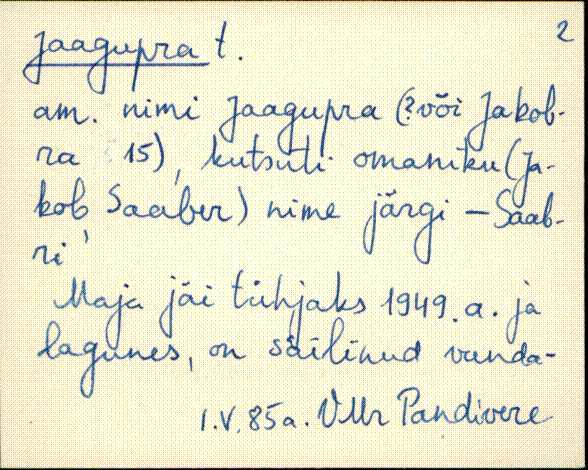 2
Jaagupra t.
am. nimi Jaagupra (? või Jakob-
ra 15), kutsuti omaniku (Ja-
kob Saaber) nime järgi – Saab-
ri
Maja jäi tühjaks 1949. a. ja
lagunes, on säilinud vunda-
1.V.85a. VMr Pandivere